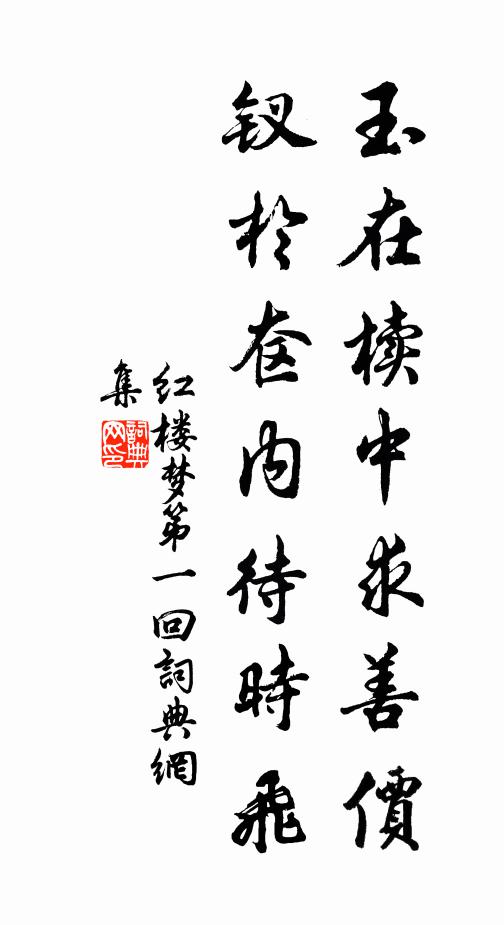 玉在椟中求善價
钗於奁内待時飛
红楼梦第一回詞典網
集
詞典
网印